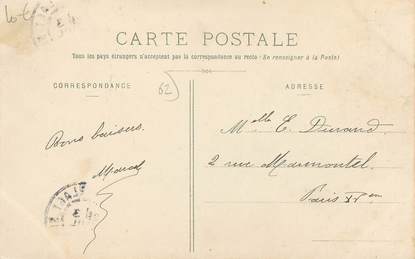 10-€
CARTE POSTALE
Tous les pays étrangers n'acceptent pas la correspondance au recto (Se renseigner à la Poste)
CORRESPONDANCE
52
ADRESSE
Bons baisers.
Marcel
Mlle E. Durand.
2 rue Marmontel.
Paris XVem